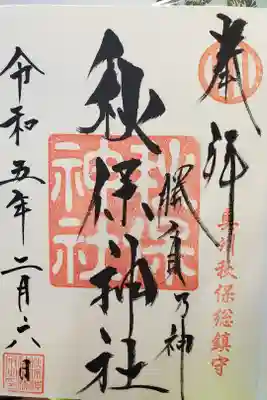 奉拝
奥州秋保総鎮守
勝負乃神
秋保神社
秋保神社
令和五年二月六日